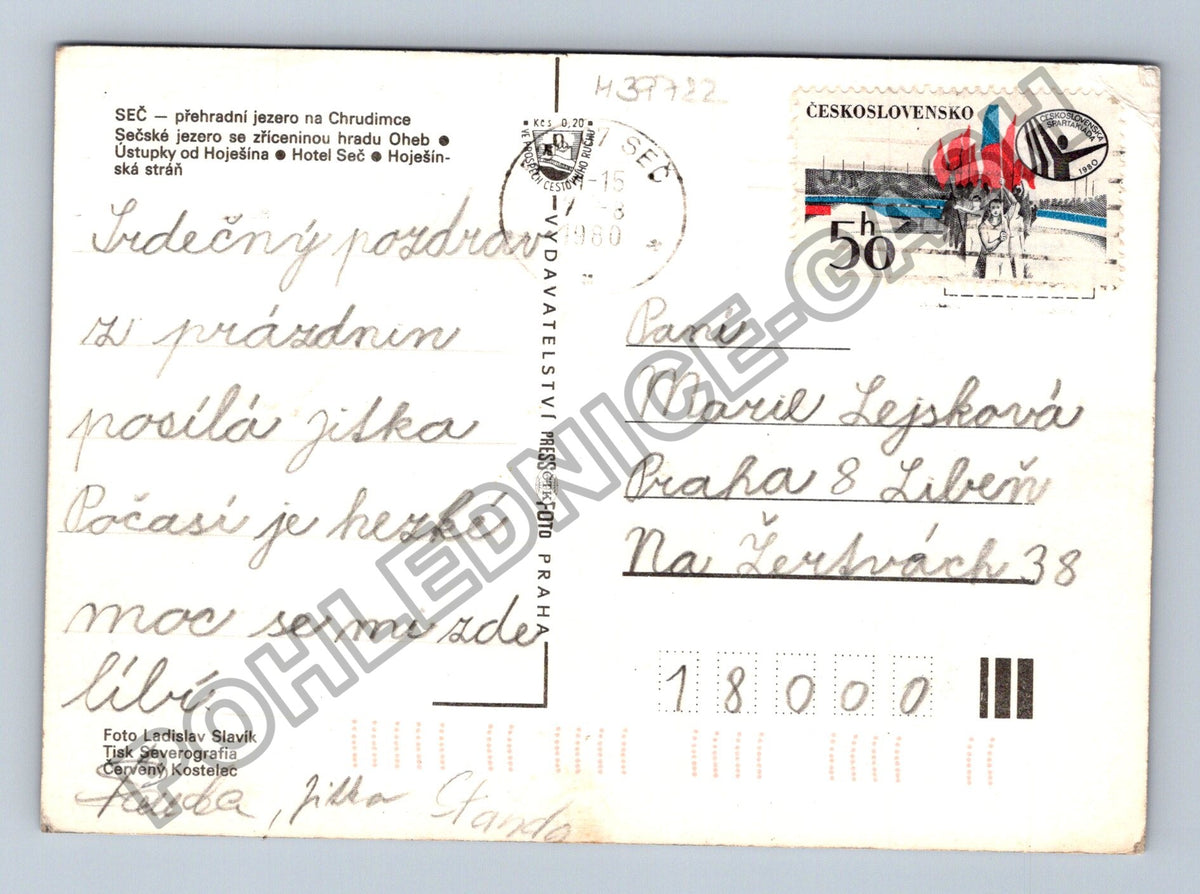 SEČ — přehradní jezero na Chrudimce
Sečské jezero se zříceninou hradu Oheb ●
Ústupky od Hoješína ● Hotel Seč ● Hoješín-
ská stráň
Srdečný pozdrav
z prázdnin
posílá Jitka
Počasí je hezké
moc se mi zde
líbí.
Foto Ladislav Slavík
Tisk Severografia
Červený Kostelec
Jitka
Standa
Kčs 0,20
VYDAVATELSTVÍ PRESSFOTO PRAHA
ČTK
H39722
SEČ
-15
1980
ČESKOSLOVENSKO
ČESKOSLOVENSKÁ SPARTAKIÁDA 1980
50h
Paní
Marie Lejsková
Praha 8 Libeň
Na Žertvách 38
18000
POHLEDNICE-GASH